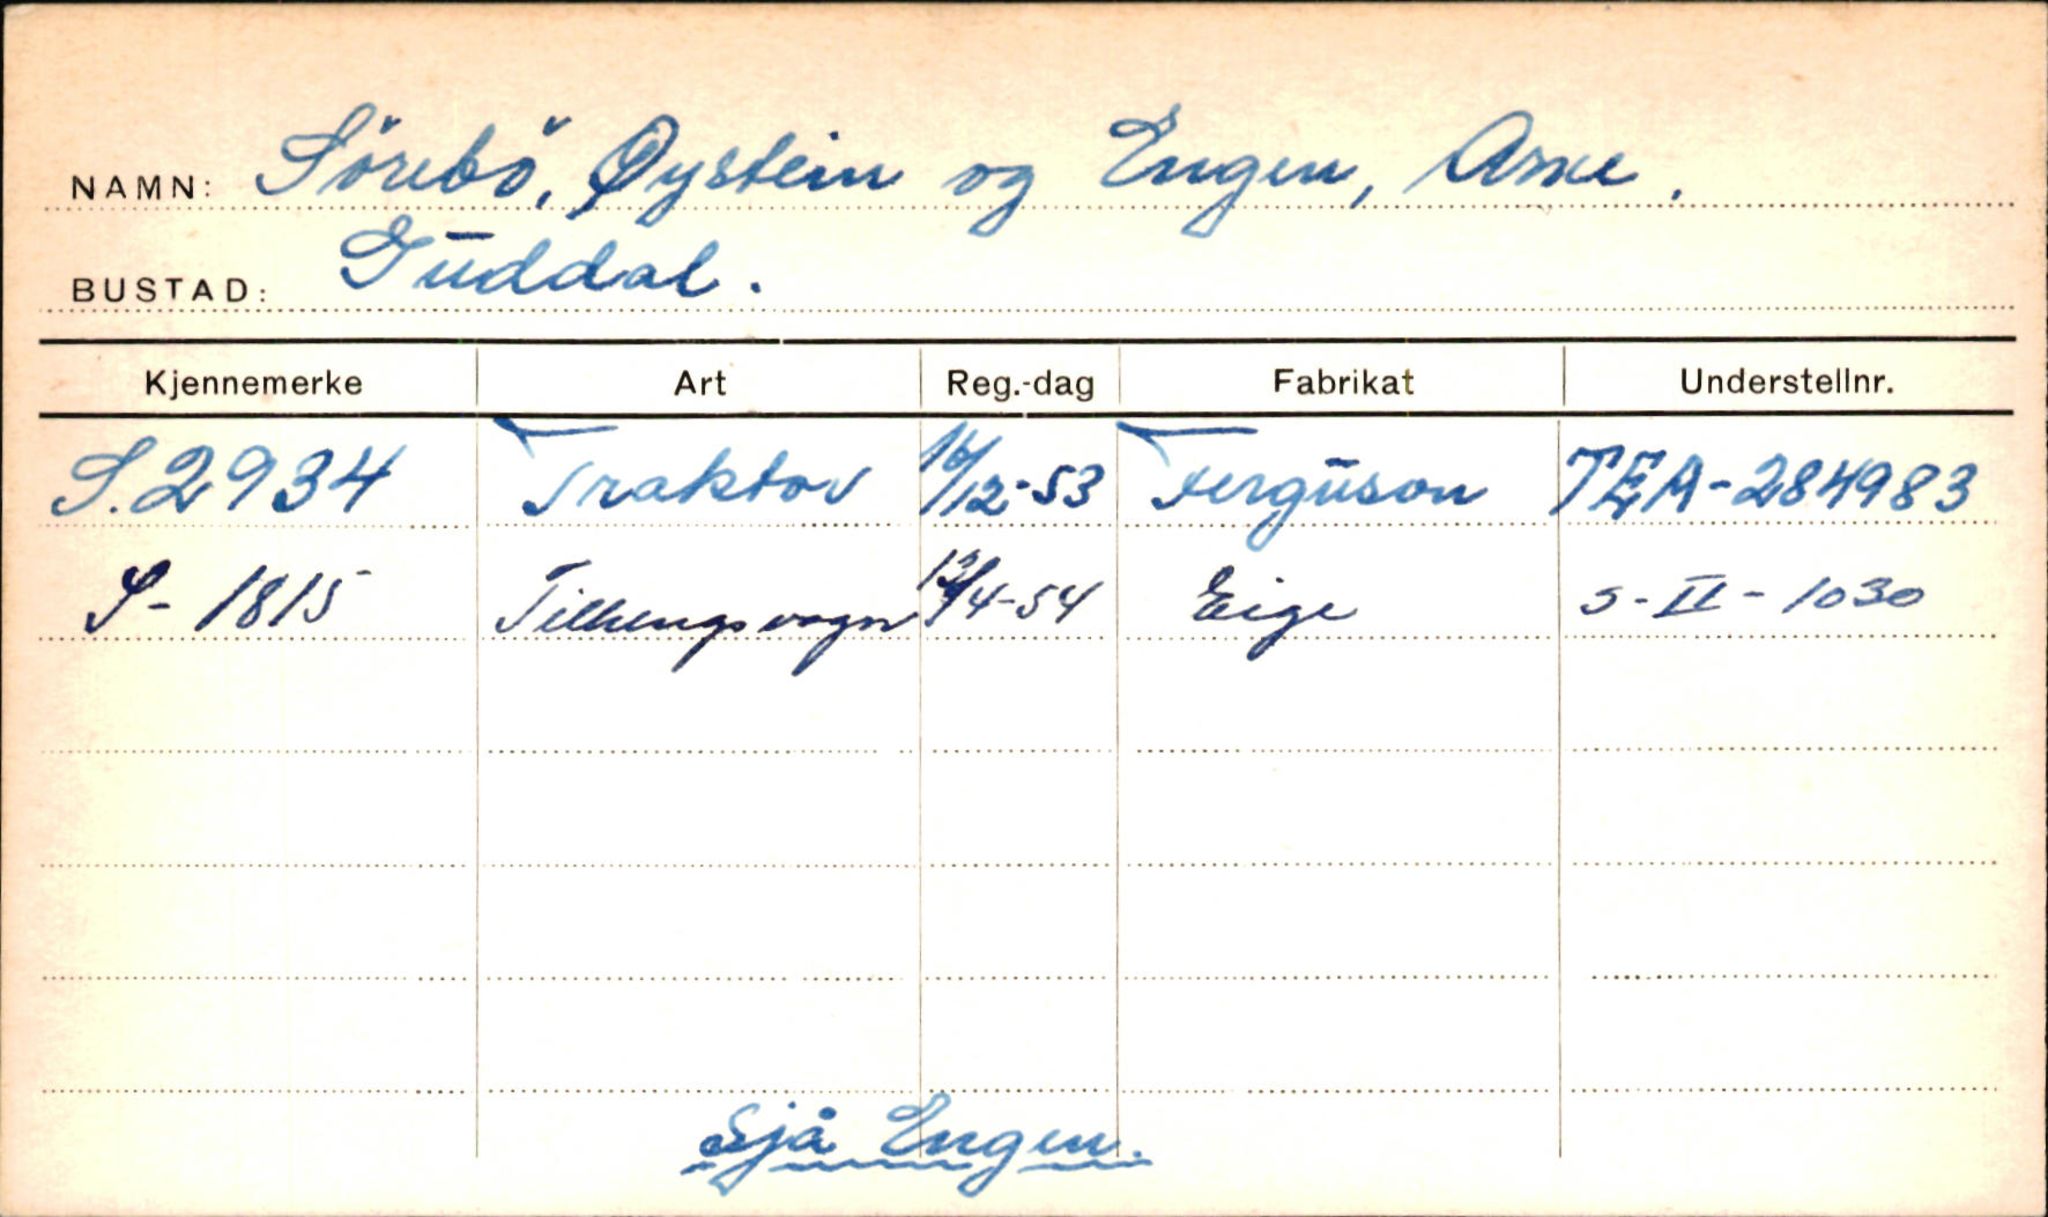 NAMN: Sörebö, Øystein og Engen, Arne.
BUSTAD: Guddal.
Kjennemerke Art Reg.-dag Fabrikat Understellnr.
S.2934 Traktor 16/12-53 Ferguson TEA-284983
S- 1815 Tilhengsvogn 13/4-54 Eige S-II-1030
Sjå Engen.